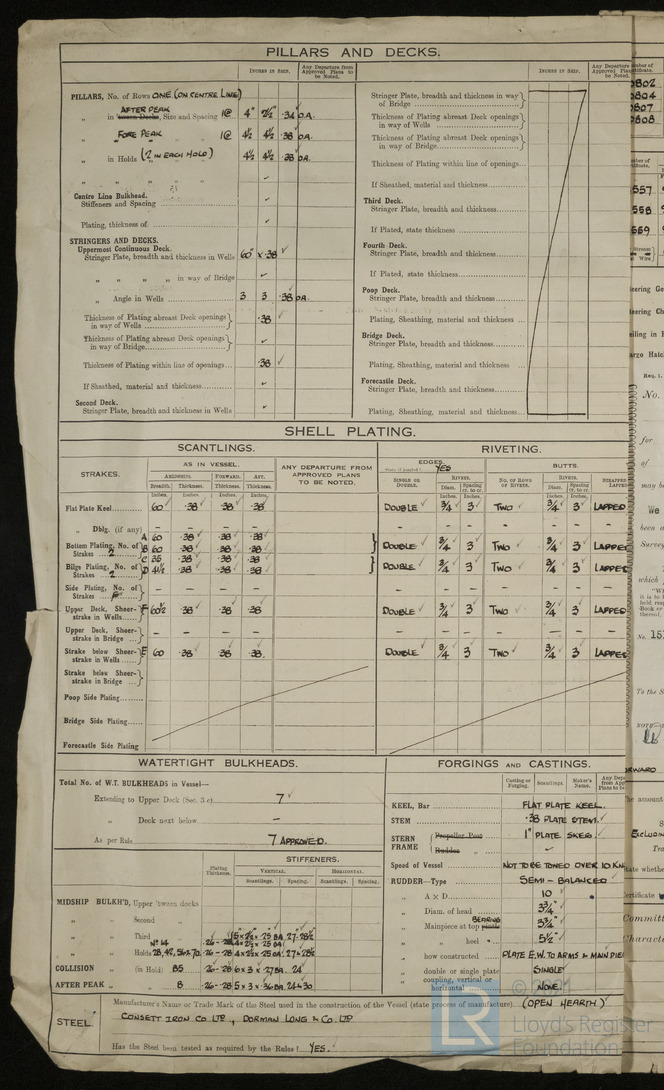 PILLARS AND DECKS.
INCHES IN SHIP.
Any Departure from Approved Plans to be Noted.
PILLARS, No. of Rows ONE (ON CENTRE LINE)
AFTER PEAK
„ in Tween Decks, Size and Spacing 1@ 4" 2½" .34 O.A.
„ FORE PEAK „ 1@ 4½ 4½ .38 O.A.
„ in Holds (2 IN EACH HOLD) 4½ 4½ .38 O.A.
„ „ „ „
Centre Line Bulkhead.
Stiffeners and Spacing
Plating, thickness of
STRINGERS AND DECKS.
Uppermost Continuous Deck.
Stringer Plate, breadth and thickness in Wells 60" x .38 ✓
„ „ „ „ in way of Bridge ✓
„ Angle in Wells 3 3 .38 O.A.
Thickness of Plating abreast Deck openings in way of Wells .38 ✓
Thickness of Plating abreast Deck openings in way of Bridge ✓
Thickness of Plating within line of openings .38 ✓
If Sheathed, material and thickness ✓
Second Deck.
Stringer Plate, breadth and thickness in Wells ✓
INCHES IN SHIP.
Any Departure from Approved Plans to be Noted.
Stringer Plate, breadth and thickness in way of Bridge
Thickness of Plating abreast Deck openings in way of Wells
Thickness of Plating abreast Deck openings in way of Bridge
Thickness of Plating within line of openings
If Sheathed, material and thickness
Third Deck.
Stringer Plate, breadth and thickness
If Plated, state thickness
Fourth Deck.
Stringer Plate, breadth and thickness
If Plated, state thickness
Poop Deck.
Stringer Plate, breadth and thickness
Plating, Sheathing, material and thickness
Bridge Deck.
Stringer Plate, breadth and thickness
Plating, Sheathing, material and thickness
Forecastle Deck.
Stringer Plate, breadth and thickness
Plating, Sheathing, material and thickness
SHELL PLATING.
SCANTLINGS.
RIVETING.
STRAKES.
AS IN VESSEL.
AMIDSHIPS. FORWARD. AFT.
Breadth. Thickness. Thickness. Thickness.
Inches. Inches. Inches. Inches.
ANY DEPARTURE FROM APPROVED PLANS TO BE NOTED.
EDGES. YES
SINGLE OR DOUBLE.
RIVETS.
Diam. Spacing cr. to cr.
Inches. Inches.
BUTTS.
No. OF ROWS OF RIVETS.
RIVETS.
Diam. Spacing cr. to cr.
Inches. Inches.
Flat Plate Keel 60 .38 .38 .38 DOUBLE ¾ 3 TWO ¾ 3 LAPPED
„ Dblg. (if any) – – – – – – – – – – –
Bottom Plating, No. of Strakes 2
A 60 .38 .38 .38
B 60 .38 .38 .38 DOUBLE ¾ 3 TWO ¾ 3 LAPPED
Bilge Plating, No. of Strakes 2
C 35 .38 .38 .38
D 41½ .38 .38 .38 DOUBLE ¾ 3 TWO ¾ 3 LAPPED
Side Plating, No. of Strakes – – – – – – – – –
Upper Deck, Sheerstrake in Wells F 60½ .38 .38 .38 DOUBLE ¾ 3 TWO ¾ 3 LAPPED
Upper Deck, Sheerstrake in Bridge – – – – – – – – –
Strake below Sheerstrake in Wells E 60 .38 .38 .38 DOUBLE ¾ 3 TWO ¾ 3 LAPPED
Strake below Sheerstrake in Bridge
Poop Side Plating
Bridge Side Plating
Forecastle Side Plating
WATERTIGHT BULKHEADS.
Total No. of W.T. BULKHEADS in Vessel—
Extending to Upper Deck (Sec. 3 c) 7 ✓
„ Deck next below –
As per Rule 7 APPROVED.
Plating Thickness.
STIFFENERS.
VERTICAL. HORIZONTAL.
Scantlings. Spacing. Scantlings. Spacing.
MIDSHIP BULK'D, Upper 'tween decks
„ „ Second „
„ „ Third „
„ „ Holds
COLLISION „ (in Hold) 85 .26-.28 6 x 3 x .27 BA. 24"
AFTER PEAK „ „ 8 .26-.28 5 x 3 x .36 BA. 24 & 30
FORGINGS AND CASTINGS.
Casting or Forging. Scantlings. Maker's Name.
KEEL, Bar FLAT PLATE KEEL.
STEM .38 PLATE STEM. ✓
STERN FRAME
Propeller Post 1" PLATE SKEG ✓
Rudder „ ✓
Speed of Vessel NOT TO BE TOWED OVER 10 KN
RUDDER—Type SEMI-BALANCED
„ A x D 10
„ Diam. of head 3¾"
„ Mainpiece at top pintle BEARING 3¾"
„ „ heel 5½"
„ how constructed PLATE E.W. TO ARMS & MAIN PIEC
„ double or single plate SINGLE
„ coupling, vertical or horizontal NONE
STEEL.
Manufacturer's Name or Trade Mark of the Steel used in the construction of the Vessel (state process of manufacture). (OPEN HEARTH)
CONSETT IRON CO LTD, DORMAN LONG & CO LTD
Has the Steel been tested as required by the Rules? YES.
© 2021
Lloyd's Register
Foundation
LR